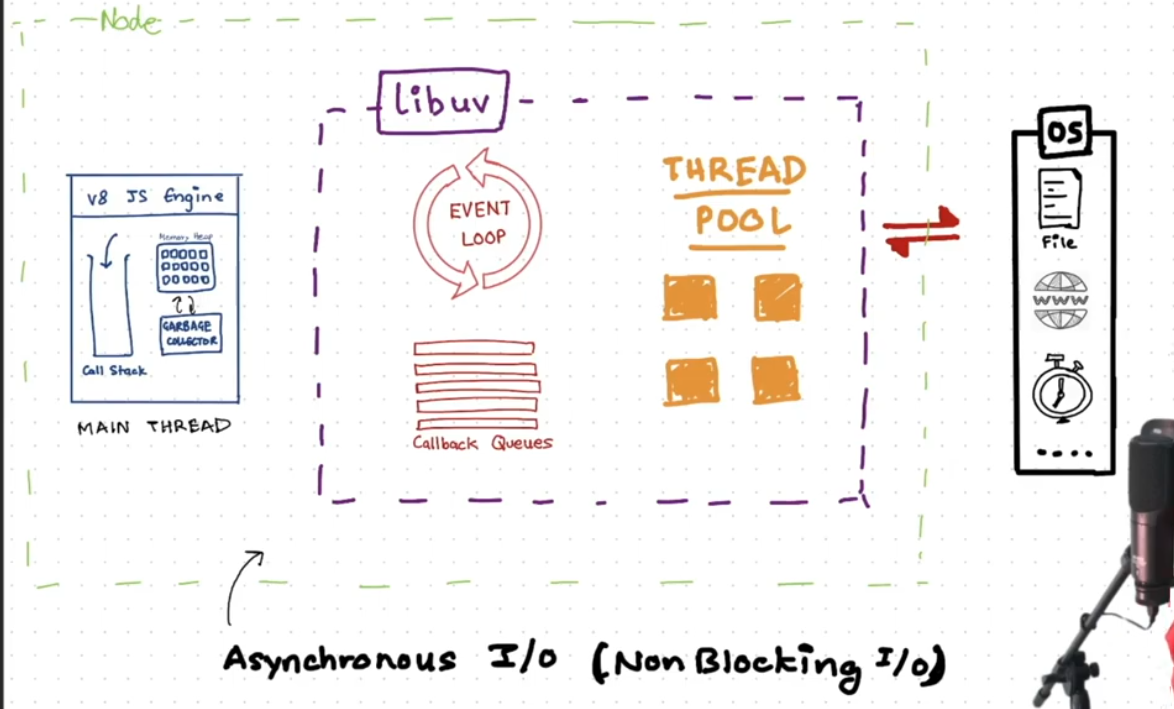 Node
libuv
OS
V8 JS Engine
Memory Heap
GARBAGE
COLLECTOR
Call Stack
MAIN THREAD
EVENT
LOOP
Callback Queues
THREAD
POOL
File
WWW
Asynchronous I/O (Non Blocking I/O)